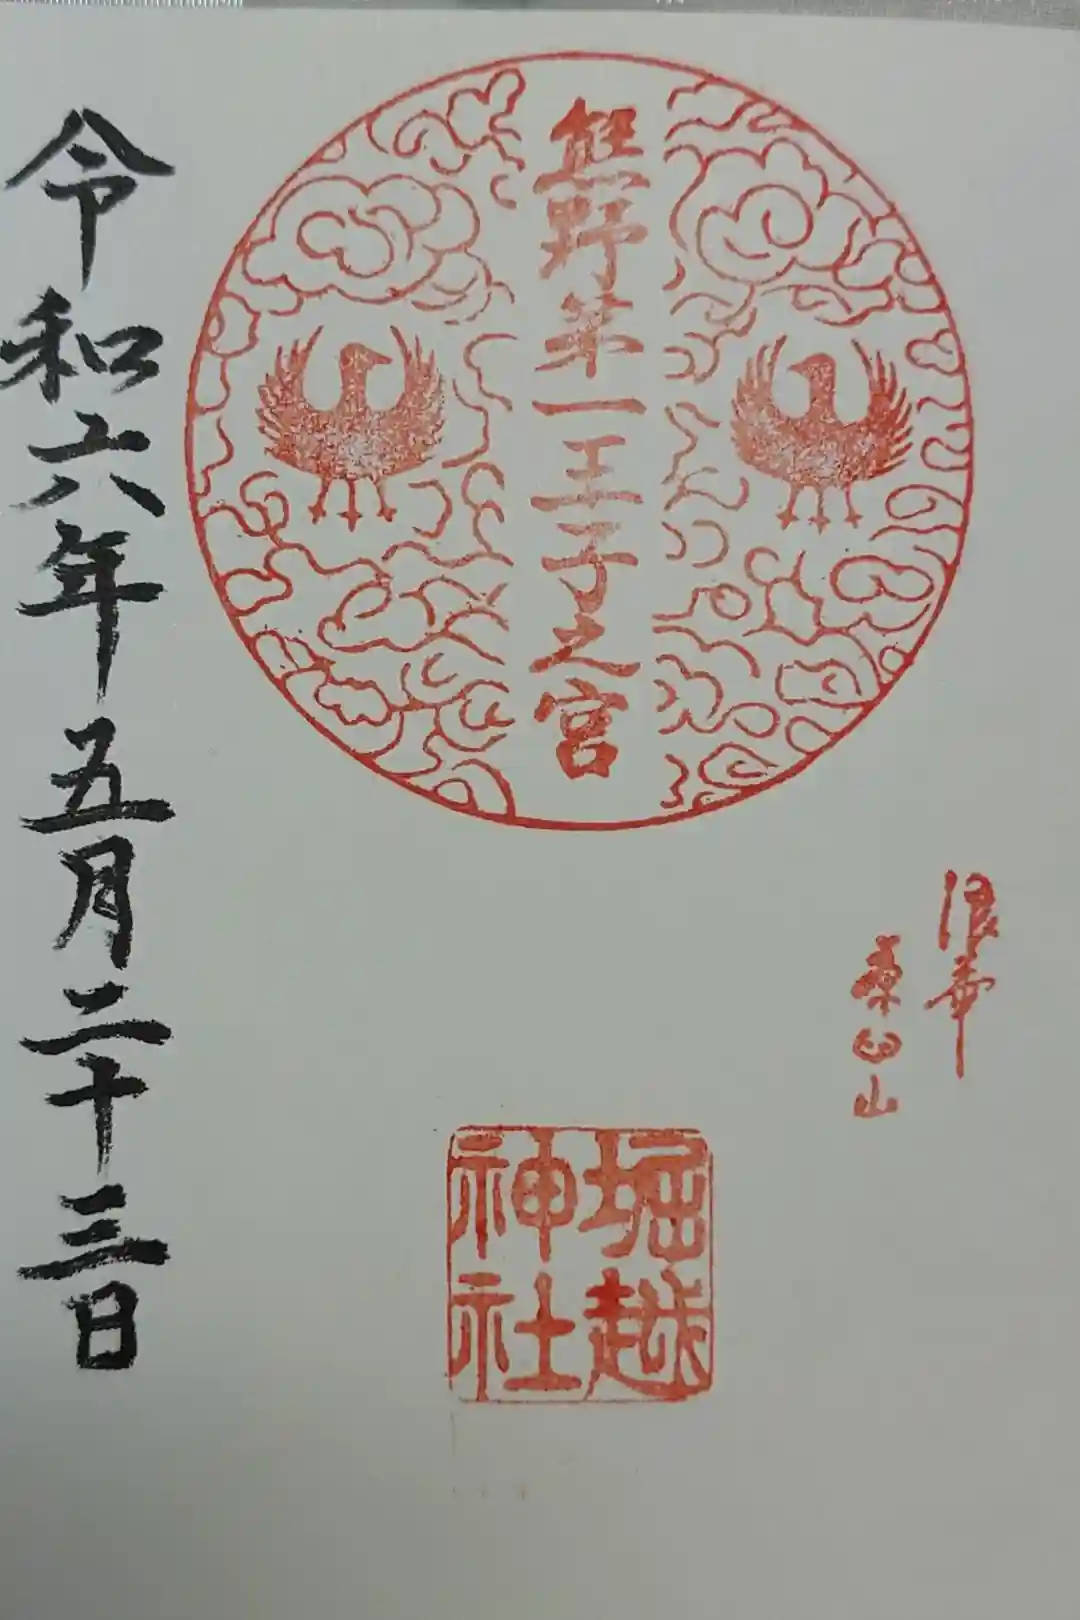 浪華
茶臼山
熊野第一王子之宮
堀越
神社
令和六年五月二十三日